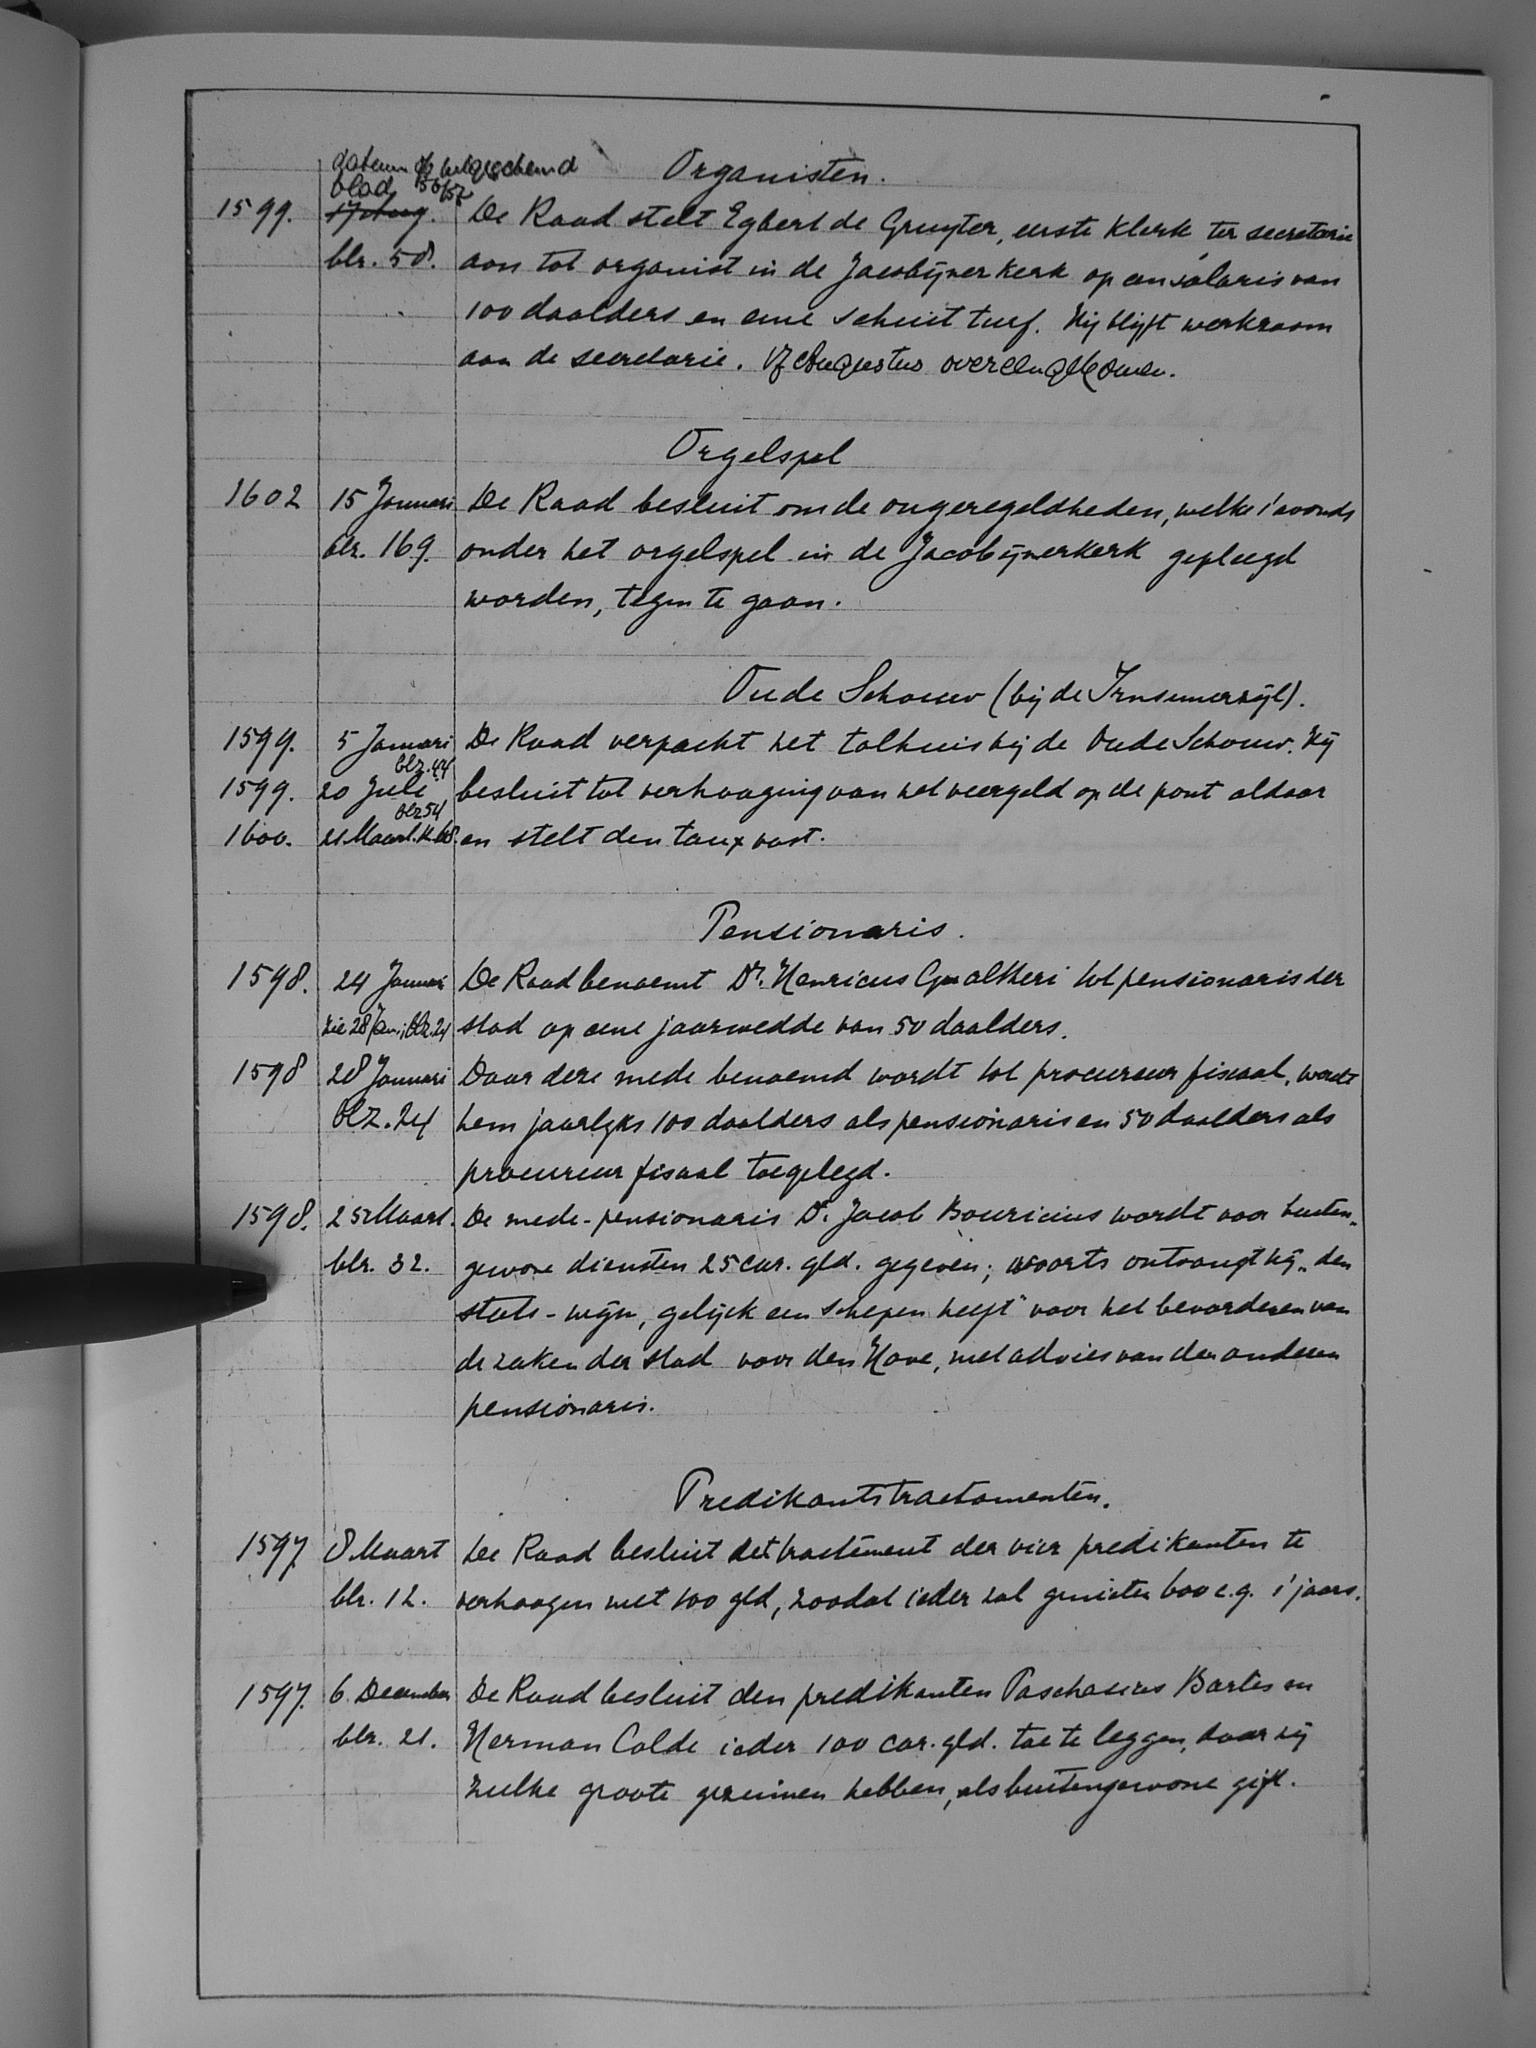 datum op blad 56/57
Organisten.
1599. 17 Aug. De Raad stelt Egbert de Gruyter, eerste klerk ter secretarie
blz. 58. aan tot organist in de Jacobijner kerk op een salaris van
100 daalders en eene schuit turf. Hij blijft werkzaam
aan de secretarie. 17 Augustus overeengekomen.
Orgelspel
1602 15 Januari De Raad besluit om de ongeregeldheden, welke 's avonds
blz. 169. onder het orgelspel in de Jacobijnerkerk gepleegd
worden, tegen te gaan.
Oude Schouw (bij de Irnsumerzijl).
1599. 5 Januari De Raad verpacht het tolhuis bij de Oude Schouw. Hij
blz. 44
1599. 20 Juli besluit tot verhooging van het veergeld op de pont aldaar
blz 54
1600. 21 Maart. en stelt den taux vast.
Pensionaris.
1598. 24 Januari De Raad benoemt Dr. Henricus Gualtheri tot pensionaris der
zie 28 Jan., blz. 24 stad op eene jaarwedde van 50 daalders.
1598 28 Januari Daar deze mede benoemd wordt tot procureur fiscaal, wordt
blz. 24 hem jaarlyks 100 daalders als pensionaris en 50 daalders als
procureur fisaal toegelegd.
1598. 25 Maart. De mede-pensionaris Dr. Jacob Bouricius wordt voor buiten-
blz. 32. gewone diensten 25 car. gld. gegeven; voorts ontvangt hij „den
stads-wijn, gelijck een schepen heeft" voor het bevorderen van
de zaken der stad voor den Hove, met advies van den anderen
pensionaris.
Predikantstractamenten.
1597 8 Maart De Raad besluit het tractement der vier predikanten te
blz. 12. verhoogen met 100 gld, zoodat ieder zal genieten 600 c.g. 's jaars.
1597. 6 December De Raad besluit den predikanten Paschasius Bartes en
blz. 21. Herman Colde ieder 100 car. gld. toe te leggen, daar zij
zulke groote gezinnen hebben, als buitengewone gift.